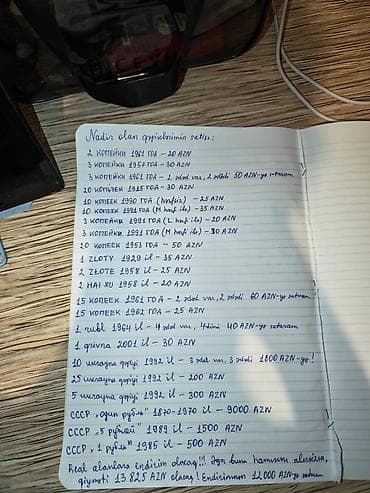 Nadir olan qəpiklərimin satışı:
2 КОПЕЙКИ 1961 ГОД – 20 AZN
3 КОПЕЙКИ 1957 ГОД – 30 AZN
3 КОПЕЙКИ 1961 ГОД – 2 ədəd var, 2 ədədi 50 AZN-yə satıram
20 КОПЕЕК 1915 ГОД – 30 AZN
10 КОПЕЕК 1990 ГОД (hərfsiz) – 25 AZN
10 КОПЕЕК 1991 ГОД (M hərfi ilə) – 35 AZN
3 КОПЕЙКИ 1991 ГОД (L hərfi ilə) – 20 AZN
3 КОПЕЙКИ 1991 ГОД (M hərfi ilə) – 30 AZN
20 КОПЕЕК 1953 ГОД – 50 AZN
1 ZLOTY 1929 il – 35 AZN
2 ZŁOTE 1958 il – 25 AZN
2 HAI XU 1958 il – 20 AZN
15 КОПЕЕК 1961 ГОД – 2 ədəd var, 2 ədədi 60 AZN-yə satıram
15 КОПЕЕК 1962 ГОД – 25 AZN
1 rubl 1964 il – 4 ədəd var, 4dünü 40 AZN-yə satıram
1 qrivna 2001 il – 30 AZN
10 ukrayna qəpiyi 1992 il – 3 ədəd var, 3 ədədi 1800 AZN-yə!
25 ukrayna qəpiyi 1992 il – 200 AZN
5 ukrayna qəpiyi 1992 il – 300 AZN
СССР „один рубль" 1870-1970 il – 9000 AZN
СССР „5 рублей" 1989 il – 1500 AZN
СССР „1 рубль" 1985 il – 500 AZN
Real alanlara endirim olacaq!!! Əgər bunu hamısını alırsınızsa,
qiyməti 13 825 AZN olacaq! Endirimnən 12 000 AZN-yə satıram